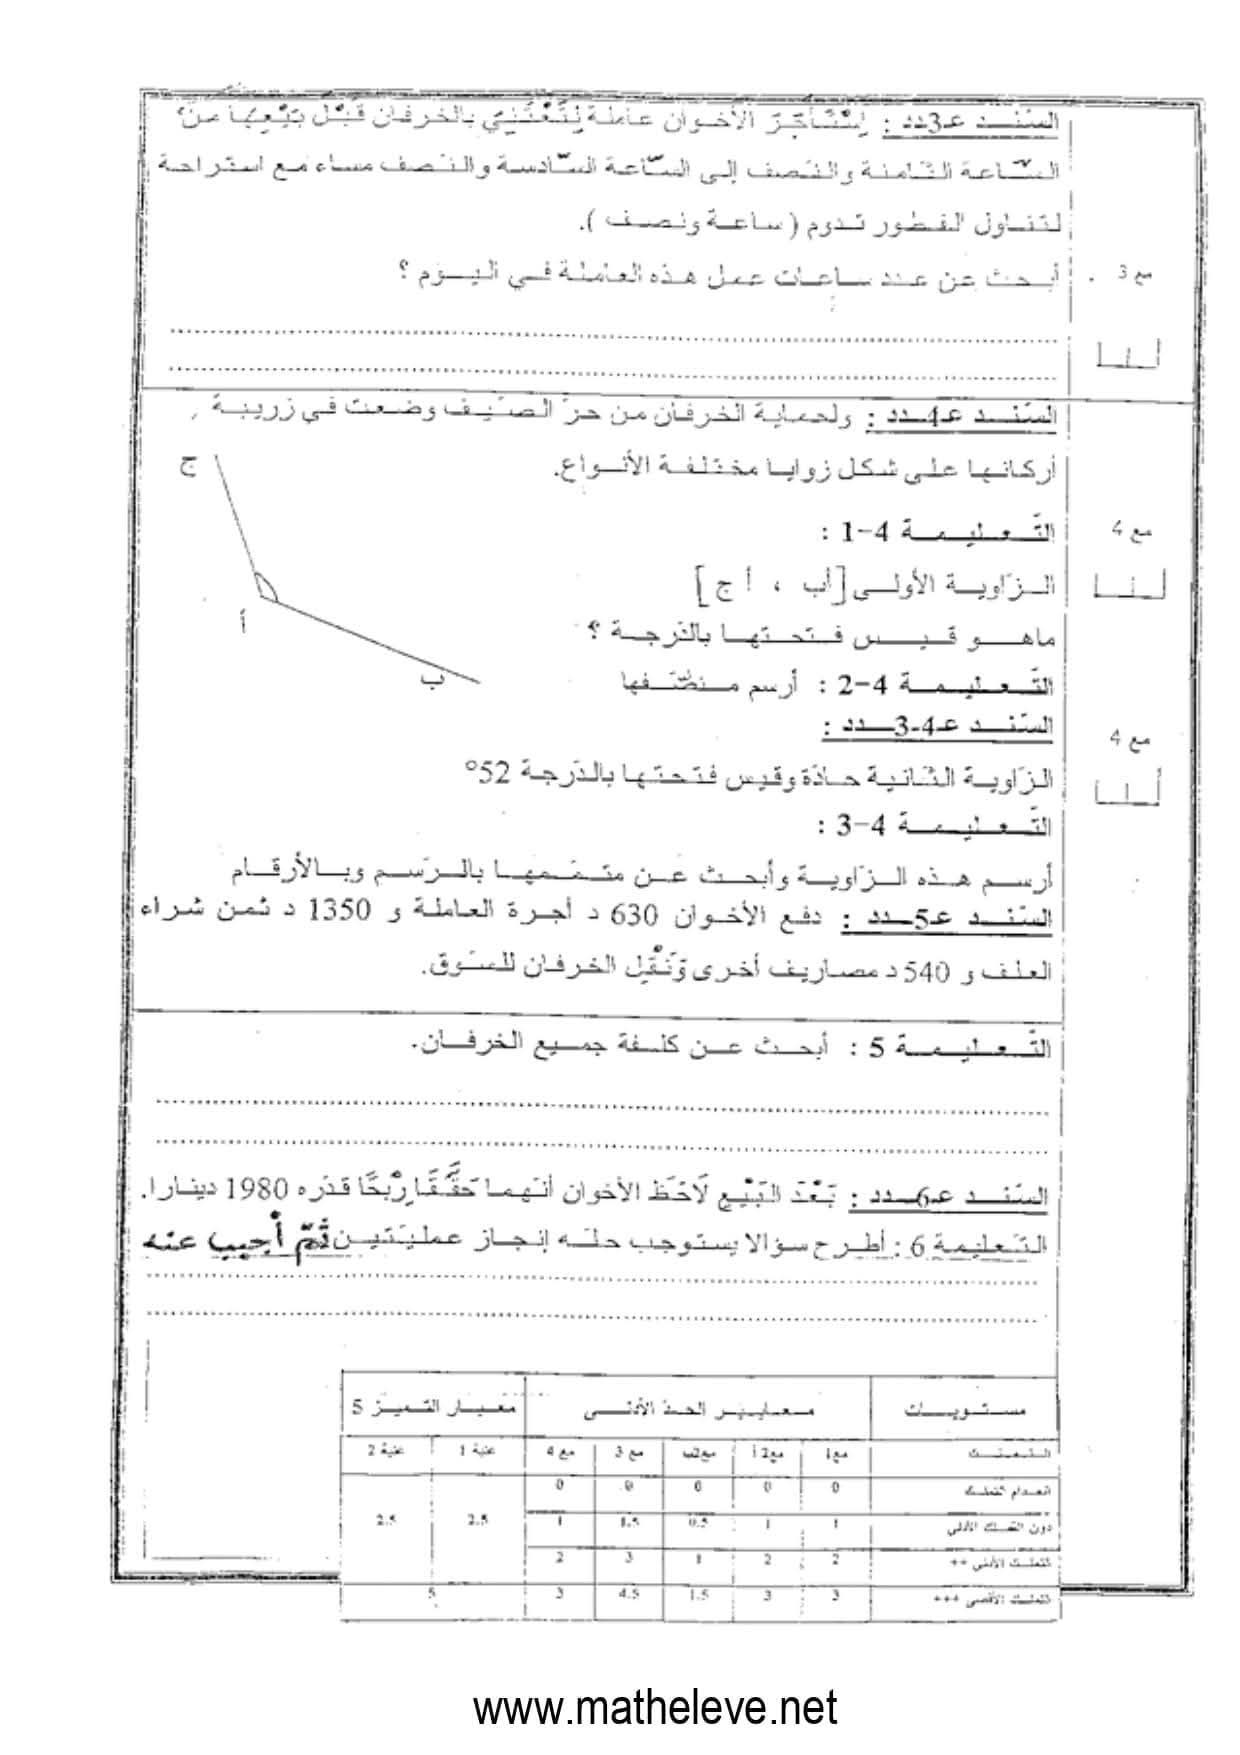 السّنـــد عـ3ـدد : اِسْتَأجَرَ الأخـوان عاملة لِتَعْتَنِيَ بالخرفان قَبْلَ بَيْعِهَا منَ
السّاعة الثّامنة والنّصف إلى السّاعة السّادسة والنّصف مساء مع استراحة
لتناول الفطور تدوم ( ساعة ونصف ).
أبحث عن عدد ساعات عمل هذه العاملة في اليوم ؟
مع 3
السّنـــد عـ4ـدد : ولحماية الخرفان من حرّ الصّيف وضعت في زريبة
أركانها على شكل زوايا مختلفة الأنواع.
ج
التّعليمة 4-1 :
مع 4
الزّاوية الأولى [أب ، أ ج]
أ
ماهو قيس فتحتها بالدّرجة ؟
ب
التّعليمة 4-2 : أرسم منصّفها
السّنـــد عـ4-3ـدد :
مع 4
الزّاوية الثّانية حادّة وقيس فتحتها بالدّرجة 52°
التّعليمة 4-3 :
أرسم هذه الزّاوية وأبحث عن متمّمها بالرّسم وبالأرقام
السّنـــد عـ5ـدد : دفع الأخوان 630 د أجرة العاملة و 1350 د ثمن شراء
العلف و 540 د مصاريف أخرى وَنَقْلِ الخرفان للسّوق.
التّعليمة 5 : أبحث عن كلفة جميع الخرفان.
السّنـــد عـ6ـدد : بَعْدَ البَيْعِ لَاحَظَ الأخوان أنّهما حَقَّقَا رِبْحًا قدره 1980 دينارا.
التّعليمة 6 : أطرح سؤالا يستوجب حلّه إنجاز عمليّتين ثمّ أجيب عنه
مستويات معايير الحدّ الأدنى معيار التميّز 5
التملّك مع1 مع2أ مع2ب مع 3 مع 4 عينة 1 عينة 2
انعدام التملك 0 0 0 0 0
دون التملك الأدنى 1 1 0.5 1.5 1 2.5 2.5
التملك الأدنى ++ 2 2 1 3 2
التملك الأقصى +++ 3 3 1.5 4.5 3 5
www.matheleve.net